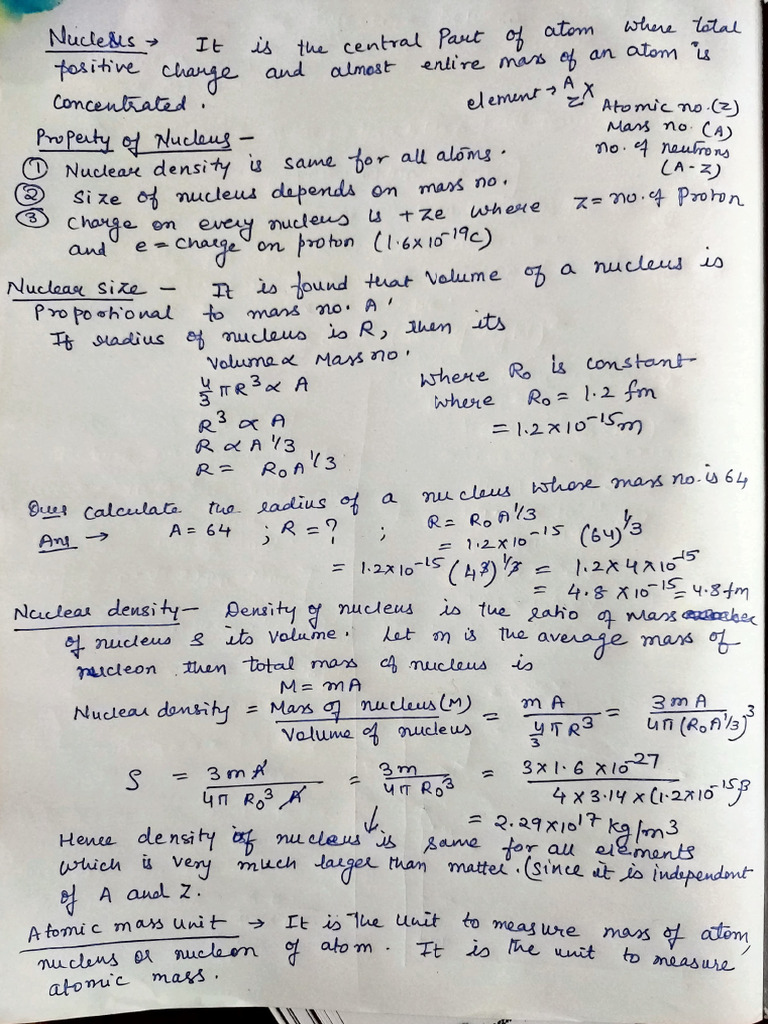 Nucleus → It is the central Part of atom where total
positive charge and almost entire mass of an atom is
concentrated.
element → ᴬ_Z X
Atomic no.(Z)
Mass no. (A)
no. of neutrons
(A-Z)
Property of Nucleus -
① Nuclear density is same for all atoms.
② Size of nucleus depends on mass no.
③ Charge on every nucleus is +Ze where Z = no. of Proton
and e = charge on proton (1.6×10⁻¹⁹C)
Nuclear size - It is found that Volume of a nucleus is
Proportional to mass no. A'
If radius of nucleus is R, then its
Volume ∝ Mass no.
4/3 πR³ ∝ A
R³ ∝ A
R ∝ A^1/3
R = R₀A^1/3
Where R₀ is constant
where R₀ = 1.2 fm
= 1.2×10⁻¹⁵m
Ques Calculate the radius of a nucleus whose mass no. is 64
Ans → A = 64 ; R = ? ; R = R₀A^1/3
= 1.2×10⁻¹⁵ (64)^1/3
= 1.2×10⁻¹⁵ (4³)^1/3 = 1.2×4×10⁻¹⁵
= 4.8×10⁻¹⁵ = 4.8fm
Nuclear density - Density of nucleus is the ratio of Mass
of nucleus & its Volume. Let m is the average mass of
nucleon then total mass of nucleus is
M = mA
Nuclear density = Mass of nucleus(M) / Volume of nucleus = mA / 4/3 πR³ = 3mA / 4π(R₀A^1/3)³
ρ = 3mA / 4πR₀³A = 3m / 4πR₀³ = 3×1.6×10⁻²⁷ / 4×3.14×(1.2×10⁻¹⁵)³
= 2.29×10¹⁷ kg/m³
Hence density of nucleus is same for all elements
which is very much larger than matter. (since it is independent
of A and Z.
Atomic mass unit → It is The unit to measure mass of atom,
nucleus or nucleon of atom. It is the unit to measure
atomic mass.